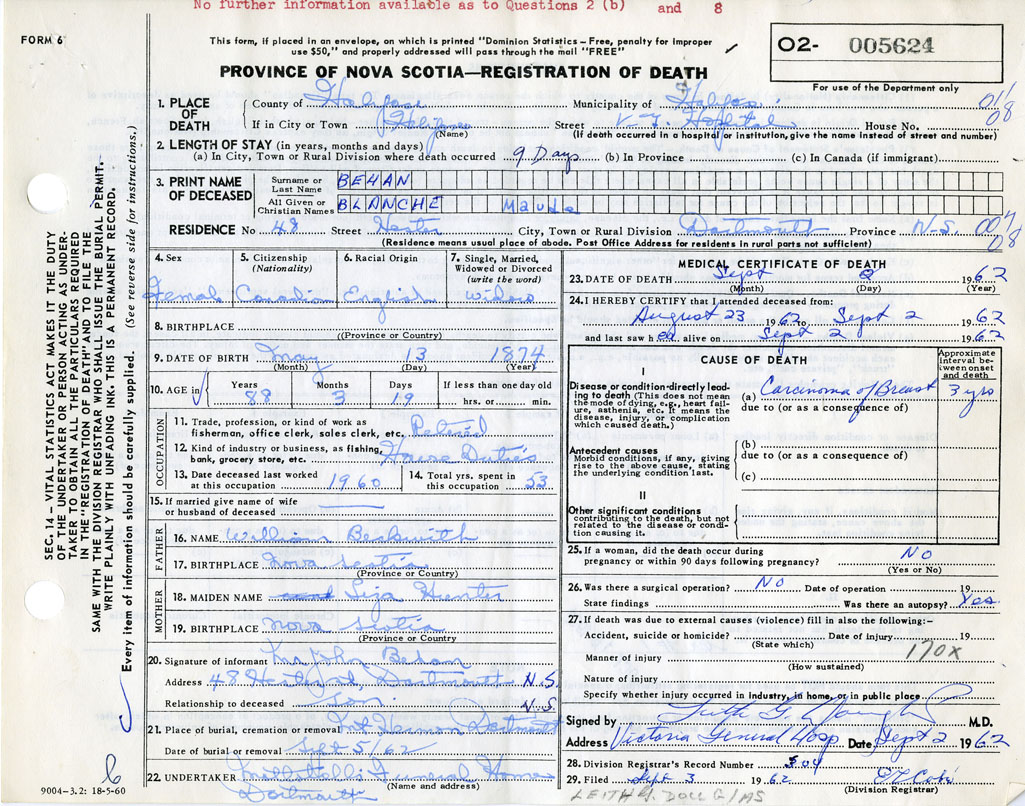 No further information available as to Questions 2 (b) and 8
FORM 6
This form, if placed in an envelope, on which is printed "Dominion Statistics – Free, penalty for improper
use $50," and properly addressed will pass through the mail "FREE"
02- 005624
PROVINCE OF NOVA SCOTIA—REGISTRATION OF DEATH
For use of the Department only
1. PLACE OF DEATH
County of Halifax Municipality of Halifax 011
08
If in City or Town Halifax Street V. G. Hospital House No.
(Name) (If death occurred in a hospital or institution, give the name instead of street and number)
2. LENGTH OF STAY (in years, months and days)
(a) In City, Town or Rural Division where death occurred 9 Days (b) In Province (c) In Canada (if immigrant)
3. PRINT NAME OF DECEASED
Surname or Last Name BEHAN
All Given or Christian Names BLANCHE Maude
RESIDENCE No 48 Street Hester City, Town or Rural Division Dartmouth Province N-S.
08
(Residence means usual place of abode. Post Office Address for residents in rural parts not sufficient)
4. Sex
Female
5. Citizenship
(Nationality)
Canadian
6. Racial Origin
English
7. Single, Married,
Widowed or Divorced
(write the word)
Widow
8. BIRTHPLACE
(Province or Country)
9. DATE OF BIRTH May 13 1874
(Month) (Day) (Year)
10. AGE in
Years Months Days If less than one day old
88 3 19 hrs. or min.
OCCUPATION
11. Trade, profession, or kind of work as
fisherman, office clerk, sales clerk, etc. Retired
12. Kind of industry or business, as fishing,
bank, grocery store, etc. House Duties
13. Date deceased last worked
at this occupation 1960
14. Total yrs. spent in
this occupation 53
15. If married give name of wife
or husband of deceased
FATHER
16. NAME William Beckwith
17. BIRTHPLACE Nova Scotia
(Province or Country)
MOTHER
18. MAIDEN NAME Liza Hunter
19. BIRTHPLACE Nova Scotia
(Province or Country)
20. Signature of informant Mr John Behan
Address 48 Dartmouth N.S.
Relationship to deceased Son N.S.
21. Place of burial, cremation or removal Mt Hermon Dartmouth
Date of burial or removal Sept 5/62
22. UNDERTAKER Funeral Home
(Name and address)
Dartmouth
9004–3.2: 18-5-60
6
MEDICAL CERTIFICATE OF DEATH
23. DATE OF DEATH Sept 2 1962
(Month) (Day) (Year)
24. I HEREBY CERTIFY that I attended deceased from:
August 23 1962 to Sept 2 1962
and last saw her alive on Sept 2 1962
CAUSE OF DEATH
Approximate
interval be-
tween onset
and death
I
Disease or condition directly lead-
ing to death (This does not mean
the mode of dying, e.g., heart fail-
ure, asthenia, etc. It means the
disease, injury, or complication
which caused death.)
(a) Carcinoma of Breast 3 yrs
due to (or as a consequence of)
Antecedent causes
Morbid conditions, if any, giving
rise to the above cause, stating
the underlying condition last.
(b)
due to (or as a consequence of)
(c)
II
Other significant conditions
contributing to the death, but not
related to the disease or condi-
tion causing it.
25. If a woman, did the death occur during
pregnancy or within 90 days following pregnancy? NO
(Yes or No)
26. Was there a surgical operation? NO Date of operation 19
State findings Was there an autopsy? Yes
27. If death was due to external causes (violence) fill in also the following:–
Accident, suicide or homicide? Date of injury 19
(State which)
170X
Manner of injury
(How sustained)
Nature of injury
Specify whether injury occurred in industry, in home, or in public place
Signed by M.D.
Address Victoria General Hosp Date Sept 2 1962
28. Division Registrar's Record Number 304
29. Filed Sept 3 1962
(Division Registrar)
SEC. 14 – VITAL STATISTICS ACT MAKES IT THE DUTY
OF THE UNDERTAKER OR PERSON ACTING AS UNDER-
TAKER TO OBTAIN ALL THE PARTICULARS REQUIRED
IN THE "REGISTRATION OF DEATH" AND FILE THE
SAME WITH THE DIVISION REGISTRAR WHO SHALL ISSUE THE BURIAL PERMIT.
WRITE PLAINLY WITH UNFADING INK. THIS IS A PERMANENT RECORD.
Every item of information should be carefully supplied. (See reverse side for instructions.)